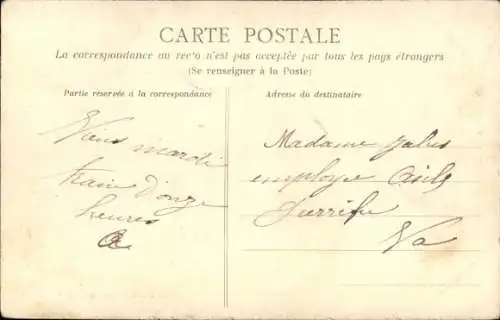 CARTE POSTALE
La correspondance au recto n'est pas acceptée par tous les pays étrangers
(Se renseigner à la Poste)
Partie réservée à la correspondance
Adresse du destinataire
Viens mardi
train d'onze
heures
Madame Jules
employe Asile
Va